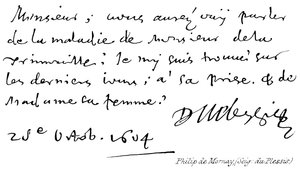 Monsieur; vous aurez ouy parler
de la maladie de Monsieur de la
. Je my suis trouvé sur
les derniers iours; a sa prise. & de
Madame sa femme.
25e Octob. 1604
Philip de Mornay (Seig. du Plessis)